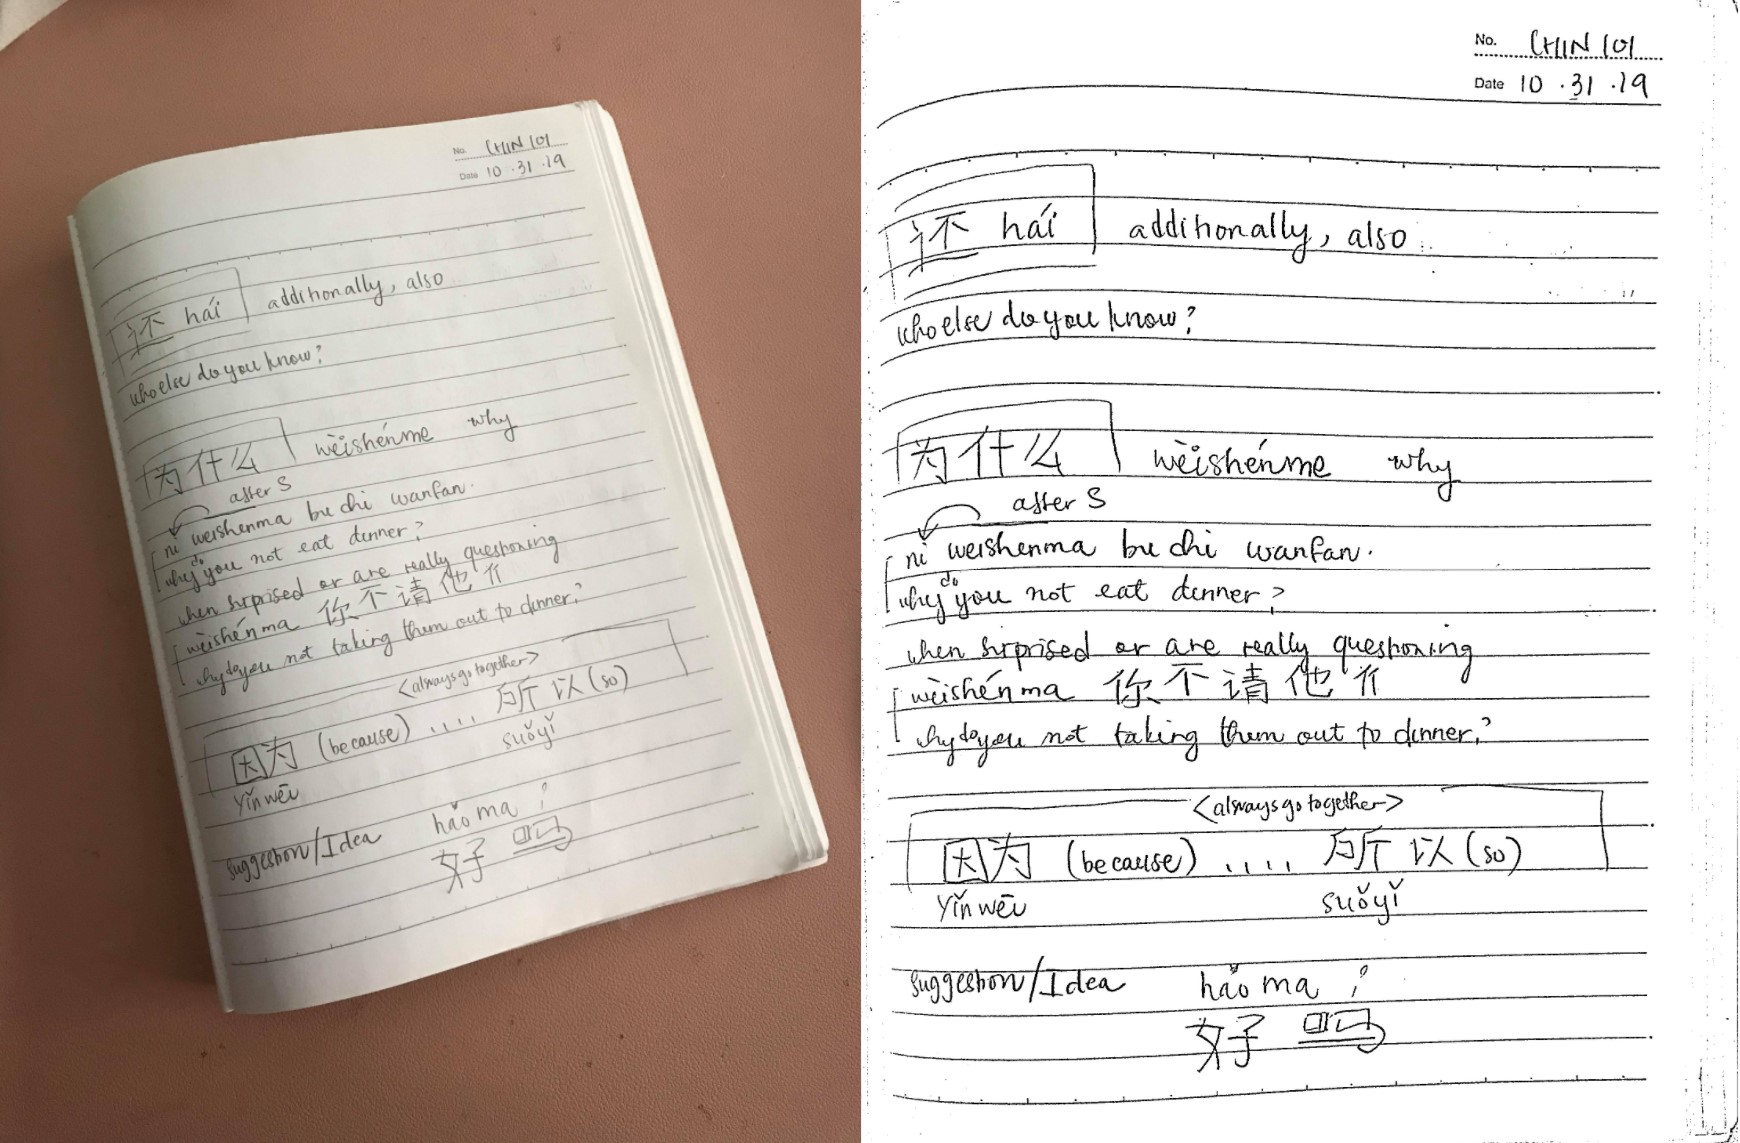 No. CHIN 101
Date 10 · 31 · 19
还 hái additionally, also
who else do you know?
为什么 wèishénme why
after S
ni weishenma bu chi wanfan.
why do you not eat dinner?
when surprised or are really questioning
wèishénma 你不请他们
why do you not taking them out to dinner?
<always go together>
因为 (because) .... 所以 (so)
yǐnwēi suǒyǐ
suggestion/Idea hǎo ma ?
好吗
No. CHIN 101
Date 10 · 31 · 19
还 hái additionally, also
who else do you know?
为什么 wèishénme why
after S
ni weishenma bu chi wanfan.
why do you not eat dinner?
when surprised or are really questioning
wèishénma 你不请他们
why do you not taking them out to dinner?
<always go together>
因为 (because) .... 所以 (so)
yǐnwēi suǒyǐ
suggestion/Idea hǎo ma ?
好吗